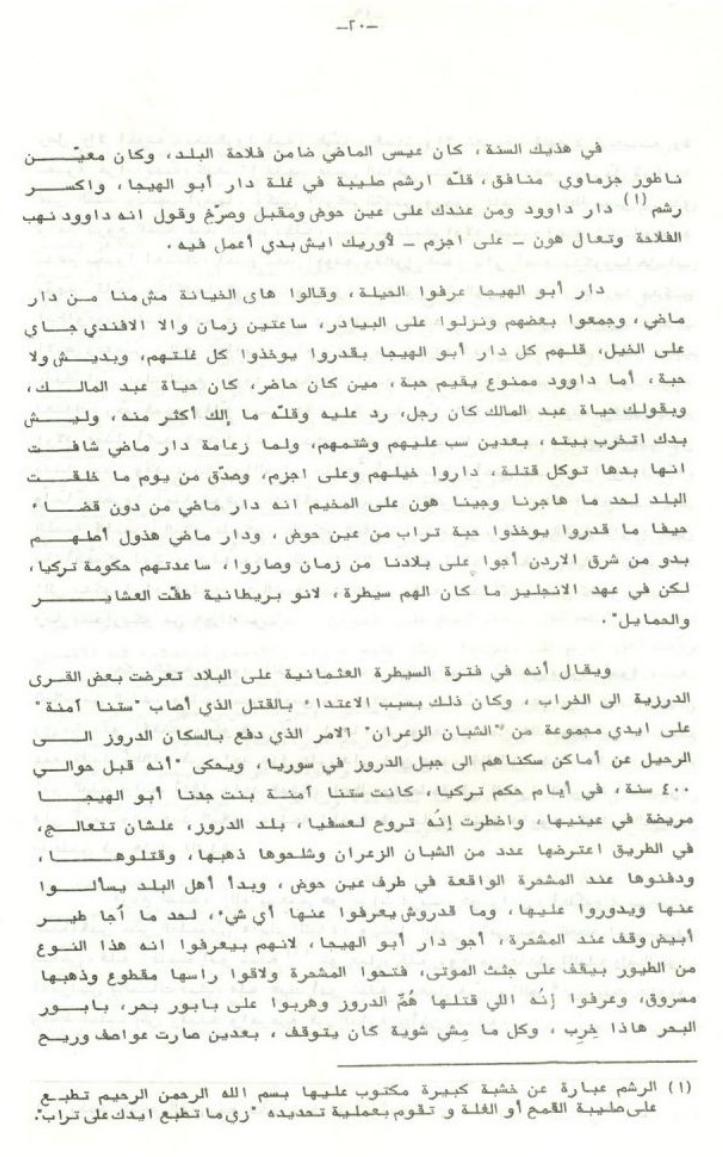 -٢٠-
في هذيك السنة، كان عيسى الماضي ضامن فلاحة البلد، وكان معيّن
ناطور جزماوي منافق، قلّه ارشم طيبة في غلة دار أبو الهيجا، واكسر
رشم (١) دار داوود ومن عندك على عين حوض ومقبل وصرّخ وقول انه داوود نهب
الفلاحة وتعال هون - على اجزم - لأوريك ايش بدي أعمل فيه.
دار أبو الهيجا عرفوا الحيلة، وقالوا هاى الخيانة مش منا من دار
ماضي، وجمعوا بعضهم ونزلوا على البيادر، ساعتين زمان والا الافندي جاي
على الخيل، قلهم كل دار أبو الهيجا بقدروا يوخذوا كل غلتهم، وبديش ولا
حبة، أما داوود ممنوع يقيم حبة، مين كان حاضر، كان حياة عبد المالك،
وبقولك حياة عبد المالك كان رجل، رد عليه وقلّه ما إلك أكثر منه، وليش
بدك اتخرب بيته، بعدين سب عليهم وشتمهم، ولما زعامة دار ماضي شافت
انها بدها توكل قتلة، داروا خيلهم وعلى اجزم، وصدّق من يوم ما خلقت
البلد لحد ما هاجرنا وجينا هون على المخيم انه دار ماضي من دون قضاء
حيفا ما قدروا يوخذوا حبة تراب من عين حوض، ودار ماضي هذول أصلهم
بدو من شرق الاردن أجوا على بلادنا من زمان وصاروا، ساعدتهم حكومة تركيا،
لكن في عهد الانجليز ما كان الهم سيطرة، لانو بريطانية طفّت العشاير
والحمايل".
ويقال أنه في فترة السيطرة العثمانية على البلاد تعرضت بعض القرى
الدرزية الى الخراب، وكان ذلك بسبب الاعتداء بالقتل الذي أصاب "ستنا آمنة"
على ايدي مجموعة من "الشبان الزعران" الامر الذي دفع بالسكان الدروز الى
الرحيل عن أماكن سكناهم الى جبل الدروز في سوريا، ويحكى "أنه قبل حوالي
٤٠٠ سنة، في أيام حكم تركيا، كانت ستنا آمنة بنت جدنا أبو الهيجا
مريضة في عينيها، واضطرت إنّه تروح لعسفيا، بلد الدروز، علشان تتعالج،
في الطريق اعترضها عدد من الشبان الزعران وشلحوها ذهبها، وقتلوها،
ودفنوها عند المشحرة الواقعة في طرف عين حوض، وبدأ أهل البلد يسألوا
عنها ويدوروا عليها، وما قدروش يعرفوا عنها أي شيء، لحد ما أجا طير
أبيض وقف عند المشحرة، أجو دار أبو الهيجا، لانهم بيعرفوا انه هذا النوع
من الطيور بيقف على جثث الموتى، فتحوا المشحرة ولاقوا راسها مقطوع وذهبها
مسروق، وعرفوا إنّه اللي قتلها هُمّ الدروز وهربوا على بابور بحر، بابور
البحر هاذا خِرِب، وكل ما مِشي شوية كان يتوقف، بعدين صارت عواصف وريح
(١) الرشم عبارة عن خشبة كبيرة مكتوب عليها بسم الله الرحمن الرحيم تطبع
على صليبة القمح أو الغلة و تقوم بعملية تحديده "زي ما تطبع ايدك على تراب".